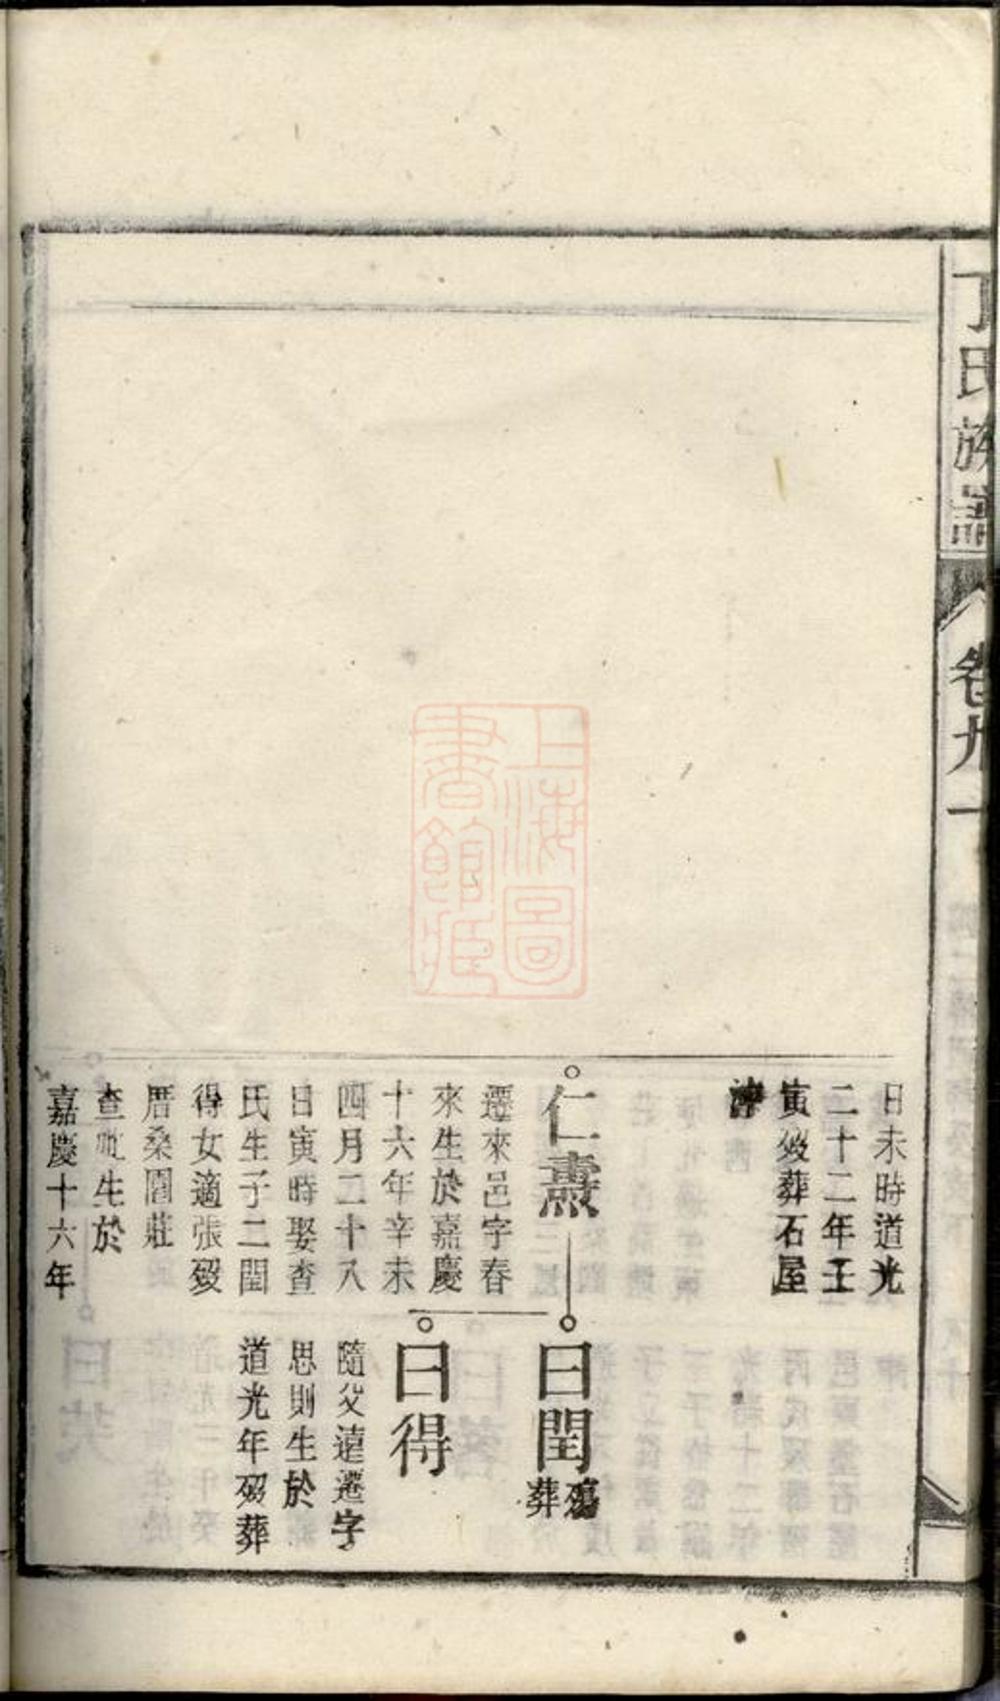 丁氏族譜
卷九一
日未時道光
二十二年壬
寅歿葬石屋
仁壽
遷來邑字春
來生於嘉慶
十六年辛未
四月二十八
日寅時娶查
氏生子二閏
得女適張歿
厝桑園莊
查氏生於
嘉慶十六年
曰閏
殤
葬
曰得
隨父遠遷字
思則生於
道光年歿葬
上海圖
書館藏